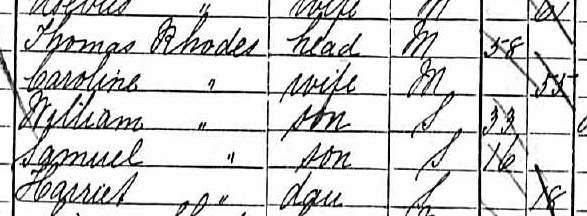 " wife M
Thomas Rhodes head M 58
Caroline " wife M 55
William " son S 33
Samuel " son S 16
Harriet " dau S 18